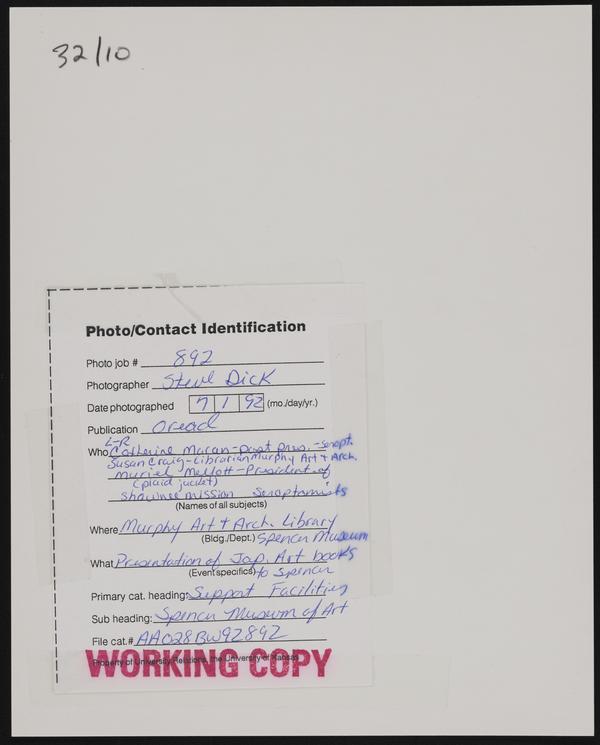 32/10
Photo/Contact Identification
Photo job # 892
Photographer Steve Dick
Date photographed 7 1 92 (mo./day/yr.)
Publication Oread
L-R
Who Catherine Moran - past pres. - seropt.
Susan Craig - Librarian Murphy Art + Arch.
Muriel Mellott - President of
(plaid jacket)
Shawnee mission Seroptomists
(Names of all subjects)
Where Murphy Art + Arch. Library
(Bldg./Dept.) Spencer Museum
What Presentation of Jap. Art books
(Event specifics) to Spencer
Primary cat. heading: Support Facilities
Sub heading: Spencer Museum of Art
File cat.# AA028BW92892
Property of University Relations, the University of Kansas
WORKING COPY